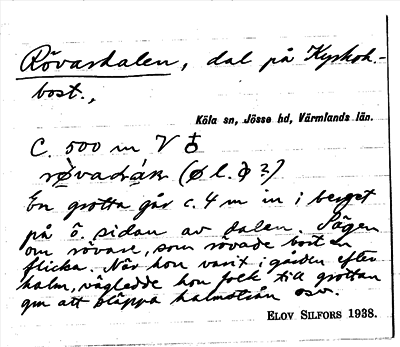 Rövardalen, dal på Kyrkoh.-
bost.,
Köla sn, Jösse hd, Värmlands län.
C. 500 m V
(ø l. ?)
En grotta går c. 4 m in i berget
på ö. sidan av dalen. Sägen
om rövare, som rövade bort en
flicka. När hon varit i gården efter
halm, vägledde hon folk till grottan
gm att släppa halmstrån osv.
ELOV SILFORS 1938.